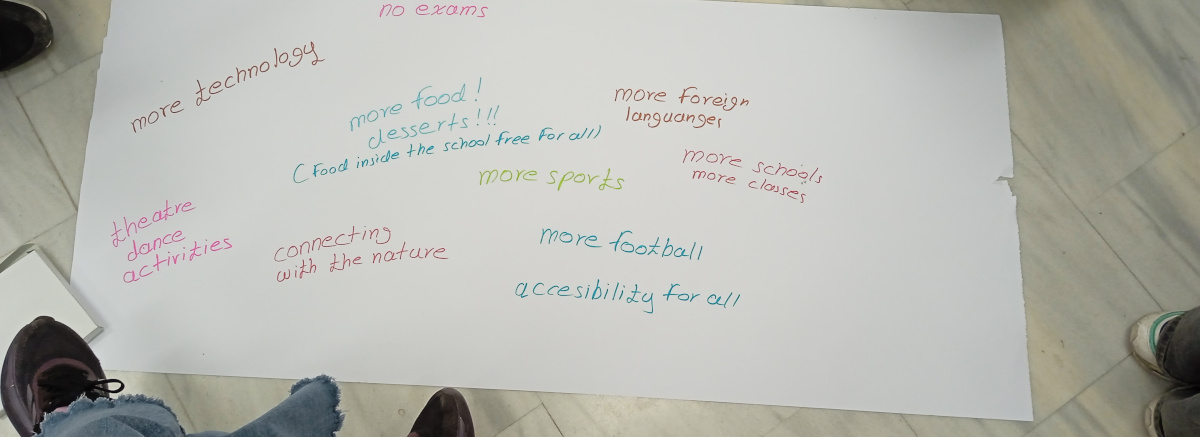 no exams
more technology
more food!
desserts!!!
(Food inside the school free for all)
more foreign
languanges
more sports
more schools
more classes
theatre
dance
activities
connecting
with the nature
more football
accesibility for all